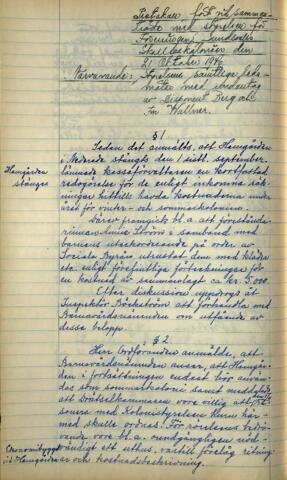 Protokoll fört vid samman-
träde med styrelsen för
Föreningen Sundsvalls
Skollovskolonier den
21 Oktober 1946
Närvarande: Styrelsens samtliga leda-
möter med undantag
av Disponent Berg och
Fru Wallner.
§ 1
Sedan det anmälts, att Hemgården
Hemgården
stänges
i Nedrede stängts den 1 sistl. september,
lämnade kassaförvaltaren en kortfattad
redogörelse för de enligt inkomna räk-
ningar hittills havda kostnaderna under
året för vinter- och sommarkolonien.
Därav framgick bl. a. att förestånda-
rinnan Annie Ström i samband med
barnens utackorderande på order av
Sociala Byrån utrustat dem med kläder
etc. enligt förefintliga förteckningar för
en kostnad av sammanlagt ca kr. 5.000.
Efter diskussion uppdrogs åt
Inspektör Bäckström att förhandla med
Barnavårdsnämnden om utfående av
dessa belopp.
§ 2
Herr Ordföranden anmälde, att
Barnavårdsnämnden anser, att Hemgår-
den i fortsättningen endast bör använ-
das som sommarkoloni samt meddelat
att Drätselkammaren vore villig att
sonera med Kolonistyrelsen hur här-
med skulle ordnas. För rörelsens bedri-
vande vore bl. a. oundgängligen nöd-
vändigt ett uthus, vartill förelåg ritning
i Hemgården
och kostnadsberäkning.